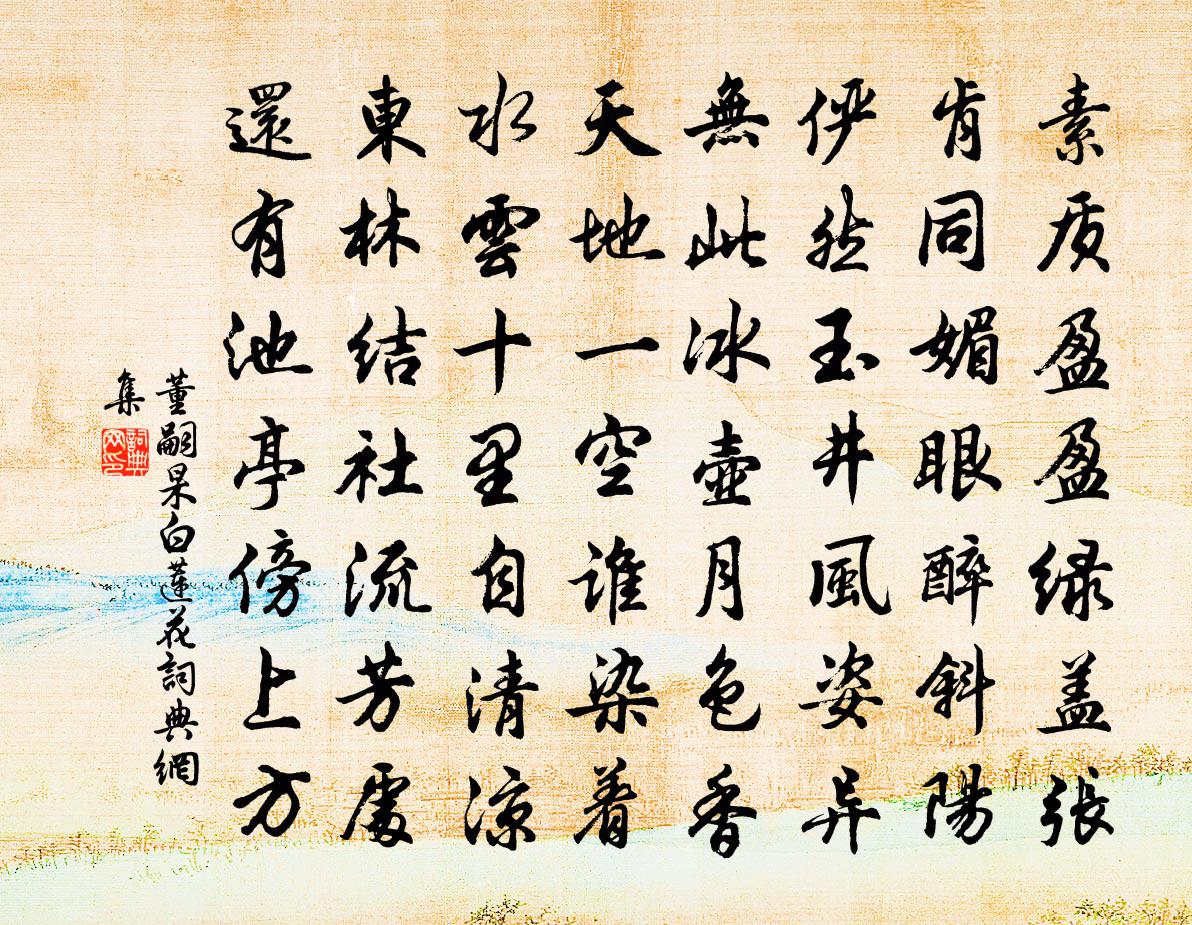 素质盈盈绿盖張
肯同媚眼醉斜陽
俨然玉井風姿异
無此冰壺月色香
天地一空谁染着
水雲十里自清涼
東林结社流芳處
還有池亭傍上方
董嗣杲白蓮花詞典網
集
詞典
网印